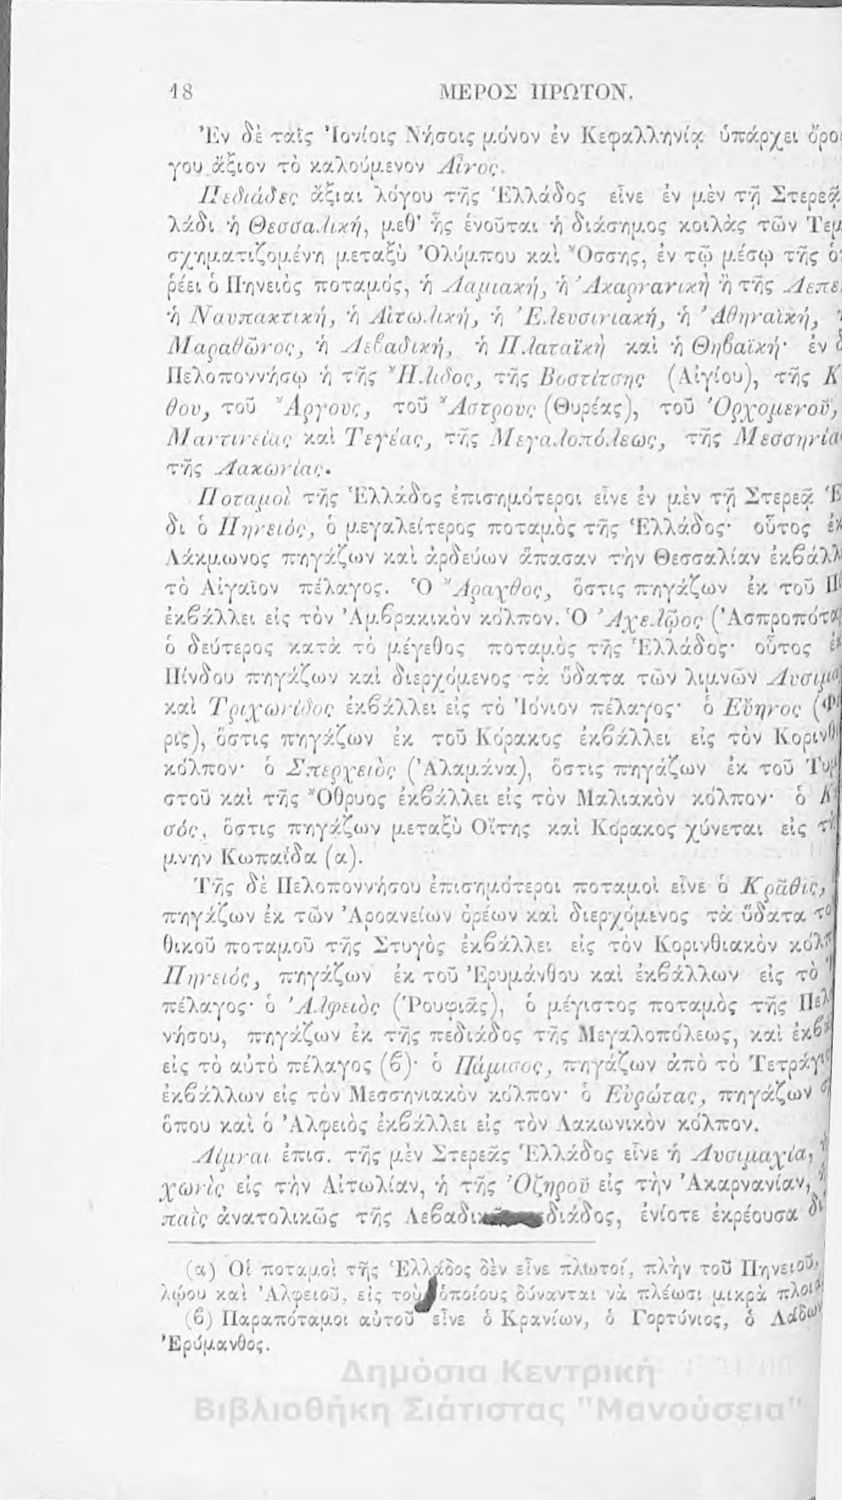 18 ΜΕΡΟΣ ΠΡΩΤΟΝ.
Ἐν δὲ ταῖς Ἰονίοις Νήσοις μόνον ἐν Κεφαλληνίᾳ ὑπάρχει ὄρο
γου ἄξιον τὸ καλούμενον Αἶνος.
Πεδιάδες ἄξιαι λόγου τῆς Ἑλλάδος εἶνε ἐν μὲν τῇ Στερεᾷ
λάδι ἡ Θεσσαλική, μεθ' ἧς ἑνοῦται ἡ διάσημος κοιλὰς τῶν Τεμ
σχηματιζομένη μεταξὺ Ὀλύμπου καὶ Ὄσσης, ἐν τῷ μέσῳ τῆς ὁ
ῥέει ὁ Πηνειὸς ποταμός, ἡ Λαμιακή, ἡ Ἀκαρνανικὴ ἢ τῆς Λεπε
ἡ Ναυπακτική, ἡ Αἰτωλική, ἡ Ἐλευσινιακή, ἡ Ἀθηναϊκή,
Μαραθῶνος, ἡ Λεβαδική, ἡ Πλαταϊκὴ καὶ ἡ Θηβαϊκή· ἐν
Πελοποννήσῳ ἡ τῆς Ἤλιδος, τῆς Βοστίτσης (Αἰγίου), τῆς Κ
θου, τοῦ Ἄργους, τοῦ Ἄστρους (Θυρέας), τοῦ Ὀρχομενοῦ,
Μαντινείας καὶ Τεγέας, τῆς Μεγαλοπόλεως, τῆς Μεσσηνία
τῆς Λακωνίας.
Ποταμοὶ τῆς Ἑλλάδος ἐπισημότεροι εἶνε ἐν μὲν τῇ Στερεᾷ Ἑ
δι ὁ Πηνειός, ὁ μεγαλείτερος ποταμὸς τῆς Ἑλλάδος· οὗτος ἐκ
Λάκμωνος πηγάζων καὶ ἀρδεύων ἅπασαν τὴν Θεσσαλίαν ἐκβάλλ
τὸ Αἰγαῖον πέλαγος. Ὁ Ἄραχθος, ὅστις πηγάζων ἐκ τοῦ
ἐκβάλλει εἰς τὸν Ἀμβρακικὸν κόλπον. Ὁ Ἀχελῷος (Ἀσπροπότα
ὁ δεύτερος κατὰ τὸ μέγεθος ποταμὸς τῆς Ἑλλάδος· οὗτος ἐκ
Πίνδου πηγάζων καὶ διερχόμενος τὰ ὕδατα τῶν λιμνῶν Λυσιμα
καὶ Τριχωνίδος ἐκβάλλει εἰς τὸ Ἰόνιον πέλαγος· ὁ Εὔηνος (Φ
ρις), ὅστις πηγάζων ἐκ τοῦ Κόρακος ἐκβάλλει εἰς τὸν Κορινθ
κόλπον· ὁ Σπερχειὸς (Ἀλαμάνα), ὅστις πηγάζων ἐκ τοῦ Τυμ
στοῦ καὶ τῆς Ὄθρυος ἐκβάλλει εἰς τὸν Μαλιακὸν κόλπον· ὁ Κ
σός, ὅστις πηγάζων μεταξὺ Οἴτης καὶ Κόρακος χύνεται εἰς τὴ
μνην Κωπαΐδα (α).
Τῆς δὲ Πελοποννήσου ἐπισημότεροι ποταμοὶ εἶνε ὁ Κρᾶθις,
πηγάζων ἐκ τῶν Ἀροανείων ὀρέων καὶ διερχόμενος τὰ ὕδατα το
θικοῦ ποταμοῦ τῆς Στυγὸς ἐκβάλλει εἰς τὸν Κορινθιακὸν κόλπ
Πηνειός, πηγάζων ἐκ τοῦ Ἐρυμάνθου καὶ ἐκβάλλων εἰς τὸ
πέλαγος· ὁ Ἀλφειὸς (Ῥουφιᾶς), ὁ μέγιστος ποταμὸς τῆς Πελ
νήσου, πηγάζων ἐκ τῆς πεδιάδος τῆς Μεγαλοπόλεως, καὶ ἐκβά
εἰς τὸ αὐτὸ πέλαγος (β)· ὁ Πάμισος, πηγάζων ἀπὸ τὸ Τετράγι
ἐκβάλλων εἰς τὸν Μεσσηνιακὸν κόλπον· ὁ Εὐρώτας, πηγάζων
ὅπου καὶ ὁ Ἀλφειὸς ἐκβάλλει εἰς τὸν Λακωνικὸν κόλπον.
Λίμναι ἐπισ. τῆς μὲν Στερεᾶς Ἑλλάδος εἶνε ἡ Λυσιμαχία,
χωνὶς εἰς τὴν Αἰτωλίαν, ἡ τῆς Ὀζηροῦ εἰς τὴν Ἀκαρνανίαν,
παῒς ἀνατολικῶς τῆς Λεβαδι διάδος, ἐνίοτε ἐκρέουσα δι
(α) Οἱ ποταμοὶ τῆς Ἑλλάδος δὲν εἶνε πλωτοί, πλὴν τοῦ Πηνειοῦ,
λῴου καὶ Ἀλφειοῦ, εἰς τοὺ ὁποίους δύνανται νὰ πλέωσι μικρὰ πλοι
(β) Παραπόταμοι αὐτοῦ εἶνε ὁ Κρανίων, ὁ Γορτύνιος, ὁ Λάδων
Ἐρύμανθος.
Δημόσια Κεντρική
Βιβλιοθήκη Σιάτιστας "Μανούσεια"